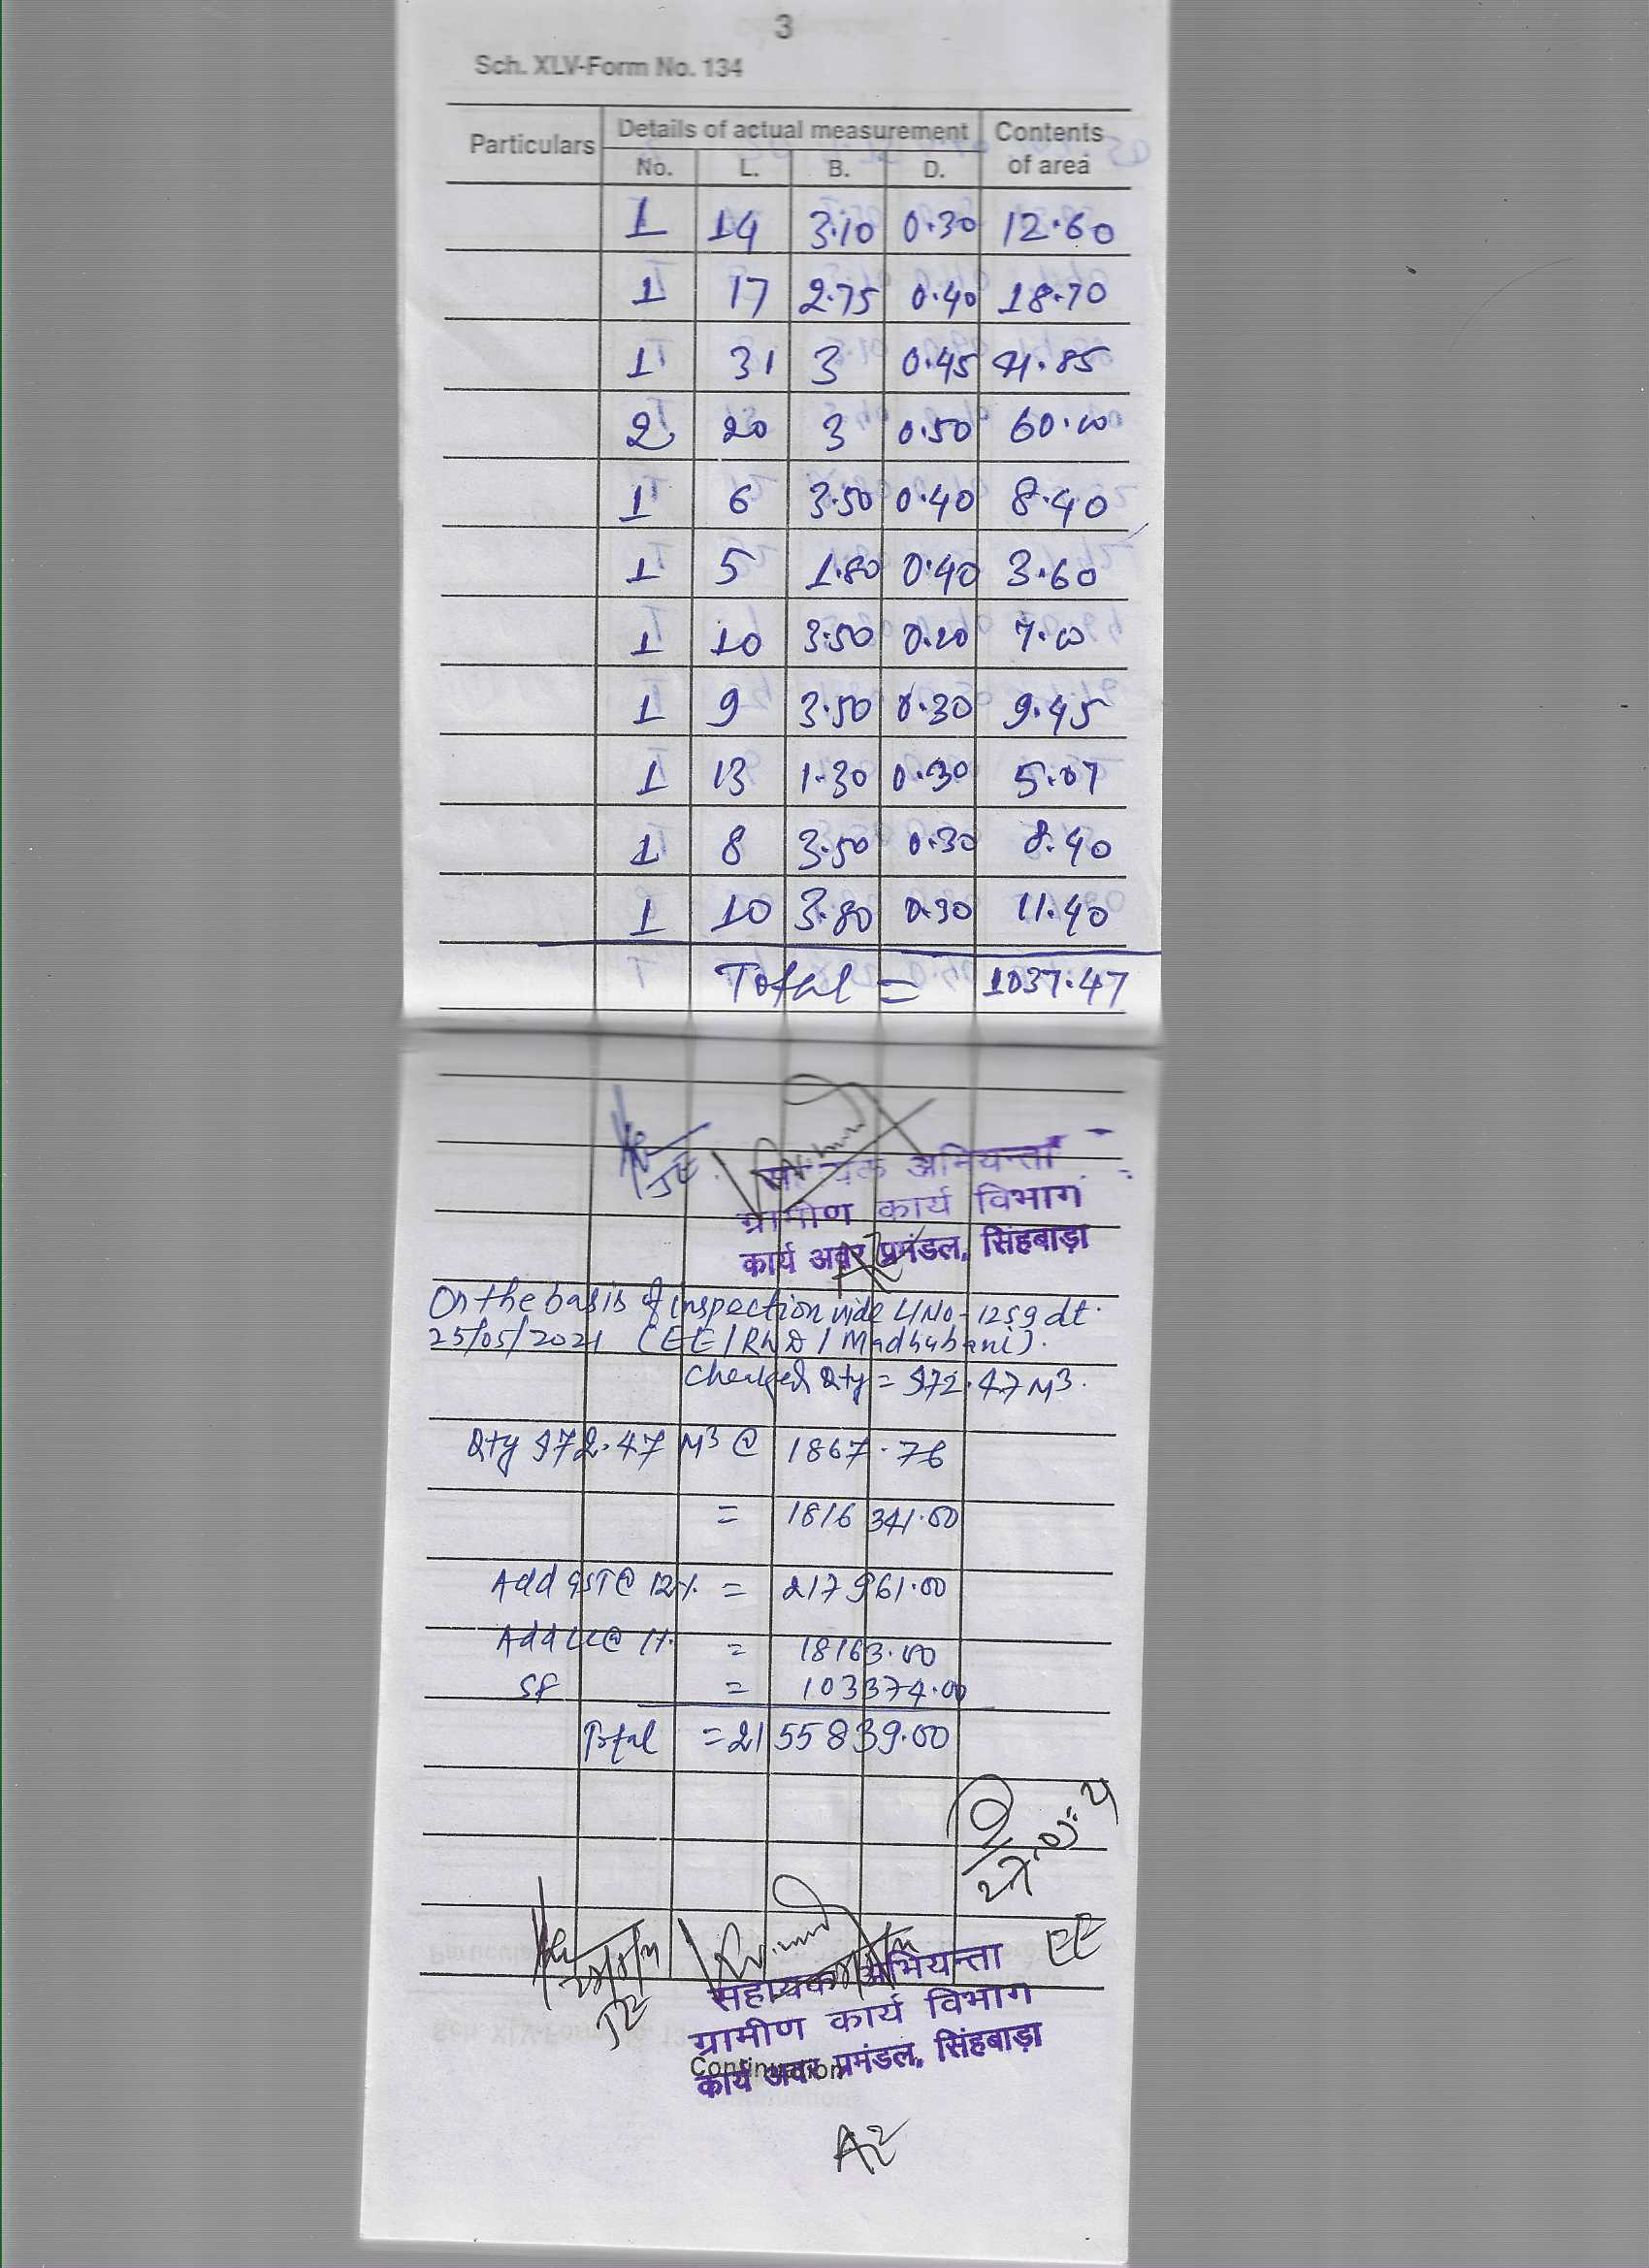 3
Sch. XLV-Form No. 134
Particulars Details of actual measurement Contents of area
No. L. B. D.
1 14 3.10 0.30 12.60
1 17 2.75 0.40 18.70
1 31 3 0.45 41.85
2 20 3 0.50 60.00
1 6 3.50 0.40 8.40
1 5 1.80 0.40 3.60
1 10 3.50 0.20 7.00
1 9 3.50 0.30 9.45
1 13 1.30 0.30 5.07
1 8 3.50 0.30 8.40
1 10 3.80 0.30 11.40
Total = 1037.47
JE
सहायक अभियन्ता
ग्रामीण कार्य विभाग
कार्य अवर प्रमंडल, सिंहबाड़ा
AE
On the basis of inspection vide L/No-1259 dt.
25/05/2021 (EE/RWD/Madhubani).
Checked Qty = 972.47 M3.
Qty 972.47 M3 @ 1867.76
= 1816341.00
Add GST @ 12%. = 217961.00
Add LC @ 1%. = 18163.00
SF = 103374.00
Total = 2155839.00
EE
JE
सहायक अभियन्ता
ग्रामीण कार्य विभाग
कार्य अवर प्रमंडल, सिंहबाड़ा
Continuation
AE